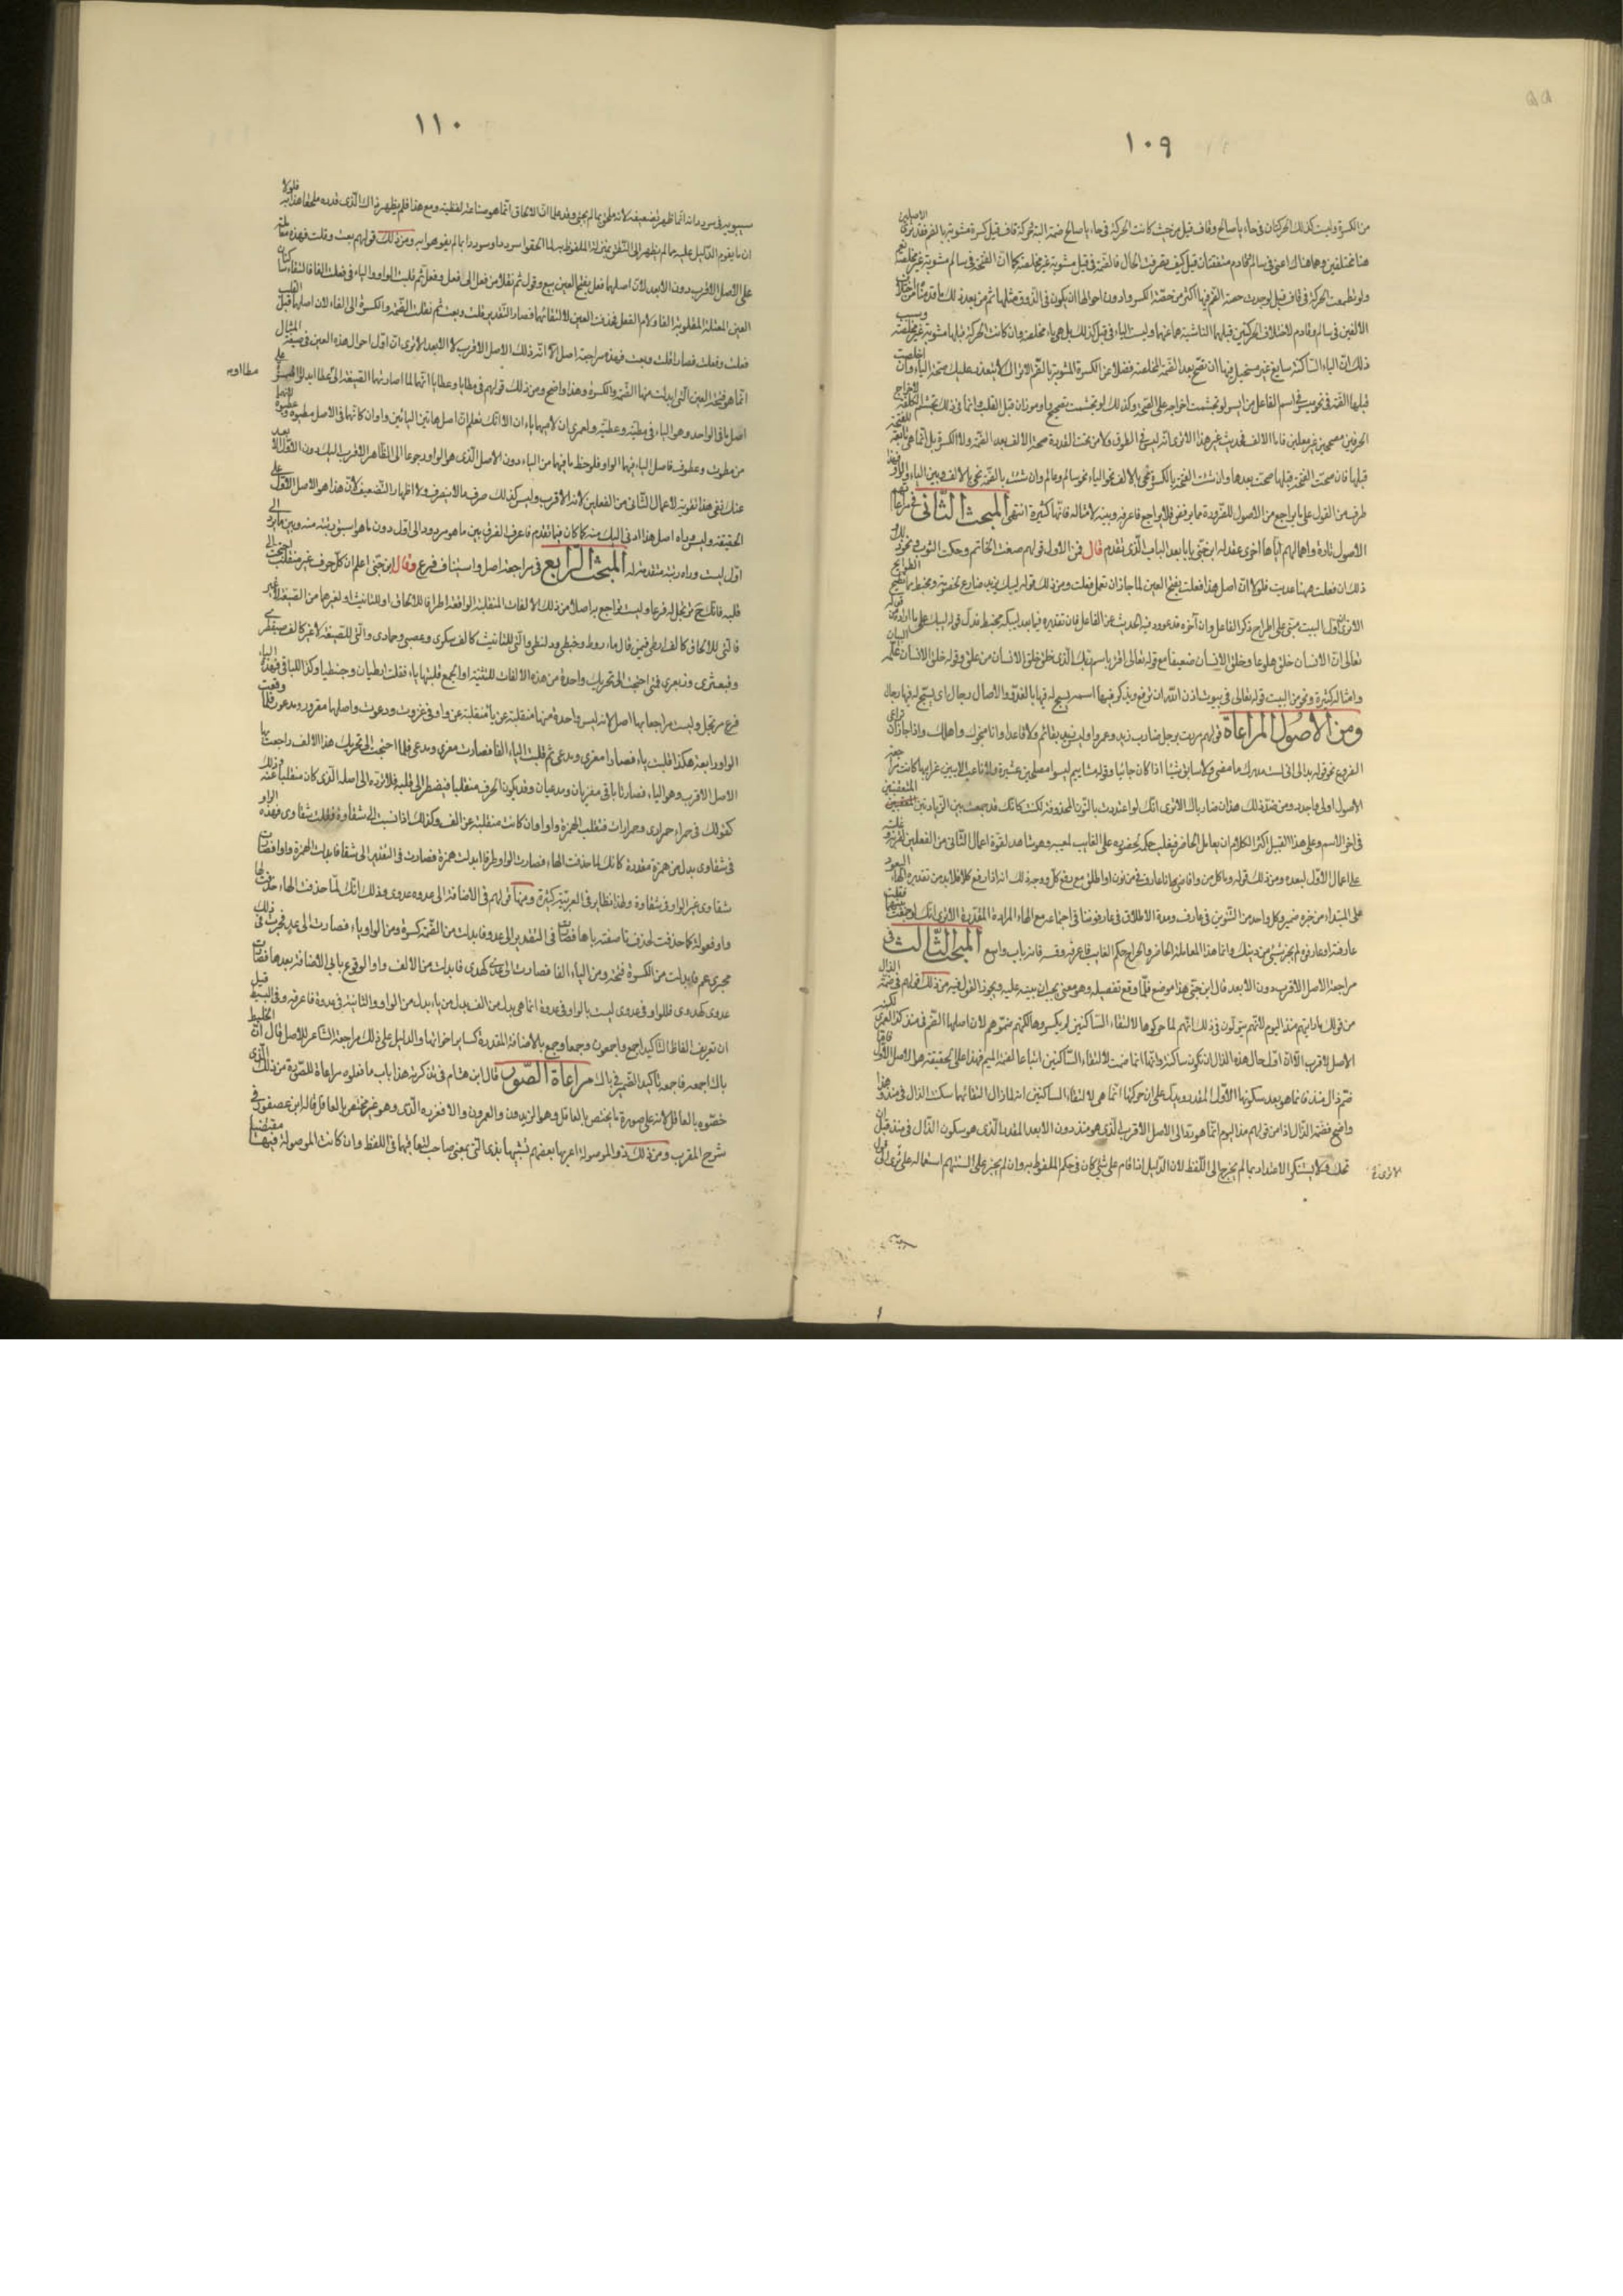 ١٠٩
من الكسرة وليست كذلك الحركتان في حاء يا صالح وقاف قيل من حيث كانت الحركة في حاء يا صالح ضمة البتة وحركة قاف قيل كسرة مشوبة بالضم فقد ترى الاصلين
هنا مختلفين وهما هناك اعنى في سالم وقادم متفقتان قيل كيف تصرفت الحال فالضمة في قيل مشوبة غير مخلصة كما ان الفتحة في سالم مشوبة غير مخلصة نعم
ولو تطعمت الحركة في قاف قيل لوجدت حصة الضم فيها اكثر من حصة الكسر وادون احوالها ان يكون في الذوق مثلها ثم من بعد ذلك ما قدمناه من اختلاف
الالفين في سالم وقادم لاختلاف الحركتين قبلهما الناشئة هما عنهما وليست الياء في قيل كذلك بل هي ياء مخلصة وان كانت الحركة قبلها مشوبة غير مخلصة وسبب
ذلك ان الياء الساكنة سايغ غير مستحيل فيها ان تصح بعد الضمة المخلصة فضلا عن الكسرة المشوبة بالضم الا تراك لا يتعذر عليك صحة الياء وان اخلصت
قبلها الضمة في نحو ميسر في اسم الفاعل من ايسر لو تجشمت اخراجه على الصحة وكذلك لو تجشمت تصحيح واو موزان قبل القلب وانما في ذلك تجشم الكلفة لاخراج
الحرفين مصححين غير معلين فاما الالف فحديث غير هذا الا ترى انه ليس في الطوق ولا من تحت القدرة صحة الالف بعد الضمة ولا الكسرة بل انما هي تابعة للفتحة
قبلها فان صحت الفتحة قبلها صحت بعدها وان شيبت الفتحة بالكسرة نحي بالالف نحو الياء نحو سالم وعالم وان شيبت بالضمة نحي بالالف وبين الياء والواو فهذا
طرف من القول على ما يراجع من الاصول للضرورة مما يرفض فلا يراجع فاعرفه وتنبه لامثاله فانها كثيرة انتهى المبحث الثانى في مراعاتهم
الاصول تارة واهمالهم اياها اخرى عقد له ابن جنى بابا بعد الباب الذى تقدم قال فمن الاول قولهم صغت الخاتم وحكت الثوب ونحو
ذلك ان فعلت هنا عديت فلولا ان اصل هذا فعلت بفتح العين لما جاز ان تعمل فعلت ومن ذلك قوله ليبك يزيد ضارع لخصومة ومختبط مما تطيح الطوائح
الا ترى ان اول البيت مبنى على اطراح ذكر الفاعل وان آخره قد عوود فيه الحديث عن الفاعل فان تقديره فيما بعد ليبكه مختبط فدل قوله ليبك على ما اراده من قوله
تعالى ان الانسان خلق هلوعا وخلق الانسان ضعيفا مع قوله تعالى اقرأ باسم ربك الذى خلق خلق الانسان من علق وقوله خلق الانسان علمه البيان
وامثاله كثيرة ونحو من البيت قوله تعالى في بيوت اذن الله ان ترفع ويذكر فيها اسمه يسبح له فيها بالغدو والاصال رجال اى يسبح له فيها رجال
ومن الاصول المراعاة قولهم مررت برجل ضارب زيد وعمرا وليس زيد بقائم ولا قاعدا وانا منجوك واهلك واذا جاز ان تراعى
الفروع نحو قوله بدا لى انى لست مدرك ما مضى ولا سابق شيئا اذا كان جائيا وقوله مشاييم ليسوا مصلحين عشيرة ولا ناعب الا ببين غرابها كانت مراجعة
الاصول اولى واجدر ومن ضد ذلك هذان ضارباك الا ترى انك لو اعتددت بالنون المحذوفة لكنت كانك قد جمعت بين الزيادتين المتعقبتين
في اخر الاسم وعلى هذا القبيل اكثر الكلام ان يعامل الحاضر فيغلب حكمه لحضوره على الغايب لمغيبه وهو شاهد لقوة اعمال الثانى من الفعلين لقربه وغلبته
على اعمال الاول لبعده ومن ذلك قوله وما كل من وافى منى انا عارف فيمن نون او اطلق مع رفع كل ووجه ذلك انه اذا رفع كلا فلا بد من تقديره الهاء ليعود
على المبتداء من خبره ضمير وكل واحد من التنوين في عارف ومدة الاطلاق في عارفو ينافى اجتماعه مع الهاء المرادة المقدرة الا ترى انك لو جمعت بينهما فقلت
عارفنه او عارفوه لم يجز شيئ من ذينك وانما هذا المعاملة الحاضر واطراح حكم الغايب فاعرفه وقسه فانه باب واسع المبحث الثالث في
مراجعة الاصل الاقرب دون الابعد قال ابن جنى هذا موضع قلما وقع تفصيله وهو معنى يجب ان ينبه عليه ويحرر القول فيه من ذلك قولهم في ضمة الذال
من قولك ما رايتهم منذ اليوم لانهم يقولون في ذلك انهم لما حركوها لالتقاء الساكنين لم يكسروها لكنهم ضموها لان اصلها الضم في منذ كذا لعمرى لكنه
الاصل الاقرب الا ان اول حال هذه الذال ان تكون ساكنة وانها انما ضمت لالتقاء الساكنين اتباعا لضمة الميم فهذا على الحقيقة هو الاصل الاول فاما
ضم ذال منذ فانما هو بعد سكونها الاول المقدر ويدلك على ان حركتها انما هى لالتقاء الساكنين انه لما زال التقائهما سكنت الذال في مذ وهذا
واضح فضمة الذال اذا من قولهم مذ اليوم انما هو رد الى الاصل الاقرب الذى هو منذ دون الابعد المقدر الذى هو سكون الذال في منذ قبل ان
تحرك ولا يستنكر الاعتداد بما لم يخرج الى اللفظ لان الدليل اذا قام على شيئ كان في حكم الملفوظ به وان لم يجر على السنتهم استعماله الا ترى الى قول
١١٠
سيبويه في سودد انه انما ظهر تضعيفه لانه ملحق بما لم يجئ وقد علما ان الالحاق انما هو صناعة لفظية ومع هذا فلم يظهر ذاك الذى قدره ملحقا هذا به فلولا
ان ما يقوم الدليل عليه مما لم يظهر الى النطق بمنزلة الملفوظ به لما الحقوا سرددا وسوددا بما لم يفوهوا به ومن ذلك قولهم بعت وقلت فهذه معاملة
على الاصل الاقرب دون الابعد لان اصلهما فعل بفتح العين بيع وقول ثم نقلا من فعل الى فعل وفعل ثم قلبت الواو والياء في فعلت الفا فالتقاء ساكنان
العين المعتلة المقلوبة الفا ولام الفعل فحذفت العين لالتقائهما فصار التقدير قلت وبعت ثم نقلت الضمة والكسرة الى الفاء لان اصلهما قبل القلب
فعلت وفعلت فصار اقلت وبعت فهذه مراجعة اصل الا انه ذلك الاصل الاقرب لا الابعد الا ترى ان اول احوال هذه العين في صيغة المثال
انما هو فتحة العين التى ابدلت منها الضمة والكسرة وهذا واضح ومن ذلك قولهم في مطايا وعطايا انهما لما اصارتهما الصيغة الى
اصل باق الواحد وهو الياء في مطية وعطية ولعمرى ان لاميهما ياءان الا انك تعلم ان اصل هاتين اليائين واوان كانهما في الاصل مطيوة وعطيوة لانهما
من مطوت وعطوت فاصل الياء فيهما الواو فلوحظ ما فيهما من الياء دون الاصل الذى هو الواو رجوعا الى الظاهر الاقرب اليك دون الاول الابعد
عنك ففى هذا تقوية لاعمال الثانى من الفعلين لانه الاقرب وليس كذلك صرف ما لا ينصرف ولا اظهار التضعيف لان هذا هو الاصل الاول على
الحقيقة وليس وراه اصل هذا ادنى اليك منه كما كان فيما تقدم فاعرف الفرق بين ما هو مردود الى اول دون ما هو اسبق رتبة منه وبين ما يرد الى
اول ليست وراه رتبة متقدمة له المبحث الرابع في مراجعة اصل واستيناف فرع وقال ابن جنى اعلم ان كل حرف غير منقلب احتجت الى
قلبه فانك ح ترتجل له فرعا وليست تراجع به اصلا من ذلك الالفات المنقلبة الواقعة اطرافا للالحاق او للتانيث او لغيرهما من الصيغة لا غير
فالتى للالحاق كالف ارطى فيمن قال ماروط وحبنطى ودلنظى والتى للتانيث كالف سكرى وغضبى وجمادى والتى للصيغة لا غير كالف ضبغطرى
وقبعثرى وزبعرى فمتى احتجت الى تحريك واحدة من هذه الالفات للتثنية او الجمع قلبتها ياء فقلت ارطيان وحبنطيا وكذا الباقى فهذه الياء
فرع مرتجل وليست مراجعا بها اصل لانه ليس واحدة منها منقلبة عن ياء منقلبة عن واو في غزوت ودعوت واصلهما مغزو ومدعو فلما وقعت
الواو رابعة هكذا قلبت ياء فصارا مغزى ومدعى ثم قلبت الياء الفا فصارت مغزى ومدعى فلما احتجت الى تحريك هذا الالف راجعت بها
الاصل الاقرب وهو الياء فصارتا ياء في مغزيان ومدعيان وقد يكون الحرف منقلبا فيضطر الى قلبه فلا ترده الى اصله الذى كان منقلبا عنه وذلك
كقولك في حمراء حمراوى وحمراوات فتقلب الهمزة واوا وان كانت منقلبة عن الف وكذلك اذا نسبت الى شقاوة فقلت شقاوى فهذه الواو
في شقاوى بدل من همزة مقدرة كانك لما حذفت الهاء فصارت الواو طرفا ابدلت همزة فصارت في التقدير الى شقا فابدلت الهمزة واوا فصارت
شقاوى غير الواو في شقاوة ولهذا نظاير في العربية كثيرة ومنها قولهم في الاضافة الى عدوه عدوى وذلك انك لما حذفت الهاء حذفت لها
واو فعولة كما حذفت لحذف تا صفته يا هما فصارت في التقدير الى عدو فابدلت من الضمة كسرة ومن الواو ياء فصارت الى عد فجرت في ذلك
مجرى عم فابدلت من الكسرة فتحة ومن الياء الفا فصارت الى عدى كهدى فابدلت من الالف واوا لوقوع ياى الاضافة بعدها فصارت
عدوى كهدوى فالواو في عدوى ليست بالواو في عدوة انما هى بدل من الف بدل من ياء بدل من الواو والثانية في عدوة فاعرفه وفي البسيط قيل
ان تعريف الفاظ التاكيد اجمع واجمعون وجمعا وجمع بالاضافة المقدرة كساير اخواتها والدليل على ذلك مراجعة الشاعر للاصل قال ان الخليط
بانك اجمعه فاجمعه تاكيد الضمير في بانك مراعاة الصوره قال ابن هشام في تذكرته هذا باب ما فعلوه مراعاة للصورة من ذلك الذى
خصوه بالعاقل لانه على صورة ما يختص بالعاقل وهو الزيدون والعمرون والا فمفرده الذى وهو غير مختص بالعاقل قاله ابن عصفور في
شرح المقرب ومن ذلك ذو الموصولة اعربها بعضهم تشبيها بذى التى بمعنى صاحب لتعاقبهما في اللفظ وان كانت الموصولة فيها مقتضيا